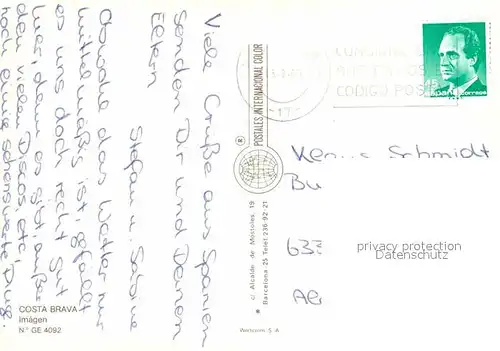 Viele Grüße aus Spanien
senden Dir und Deinen
Eltern
Stefan u. Sabine
Obwohl das Wetter nur
mittelmäßig ist, gefällt
es uns doch recht gut
hier, denn es gibt außer
den vielen Discos, etc.,
noch einige sehenswerte Dinge.
COSTA BRAVA
Imágen
N.º GE.4092
POSTALES INTERNACIONAL COLOR
®
c/. Alcalde de Móstoles, 19
Barcelona-25 Telef. 236-92-21
CODIGO POS
45
España correos
Schmidt
Bu
633
privacy protection
dummyvalue.com